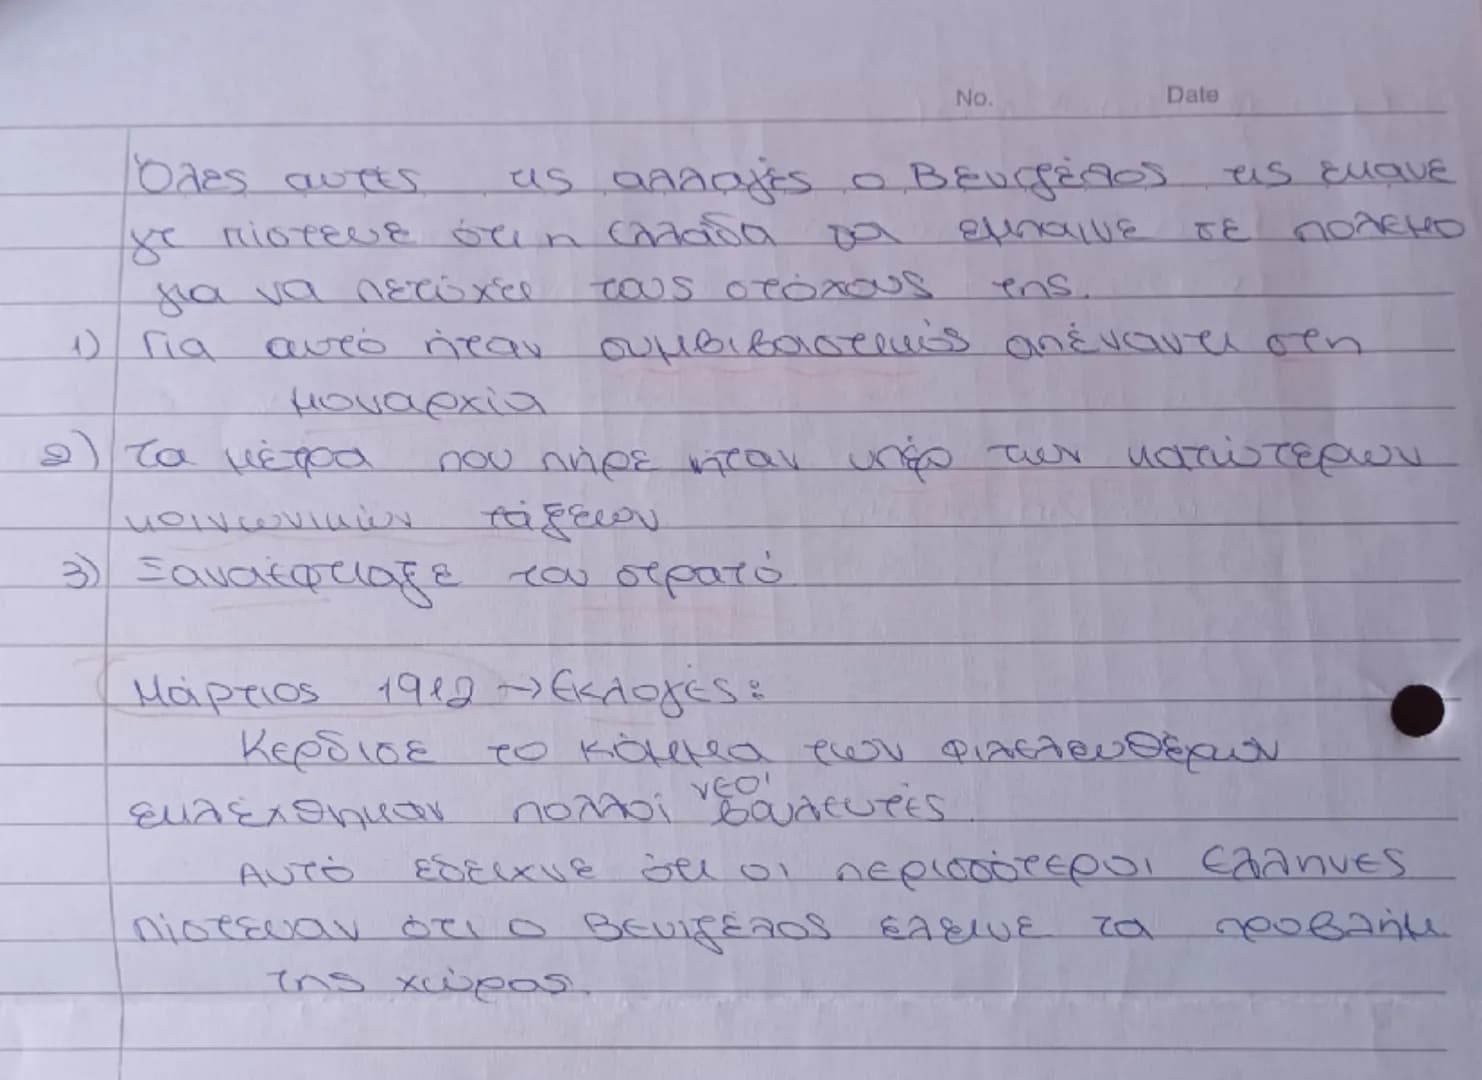 No. Date
Όλες αυτές τις αλλαγές ο Βενιζέλος τις έκανε
γτ πίστευε ότι η Ελλάδα θα έμπαινε σε πόλεμο
για να πετύχει τους στόχους της.
1) Για αυτό ήταν συμβιβαστικός απέναντι στη
μοναρχία
2) Τα μέτρα που πήρε ήταν υπέρ των κατώτερων
κοινωνικών τάξεων
3) Ξαναέφτιαξε τον στρατό
Μάρτιος 1912 → Εκλογές:
Κέρδισε το κόμμα των Φιλελευθέρων
εκλέχθηκαν πολλοί νέοι βουλευτές.
Αυτό έδειχνε ότι οι περισσότεροι Έλληνες
πίστευαν ότι ο Βενιζέλος έλεινε τα προβλήμ
της χώρας.